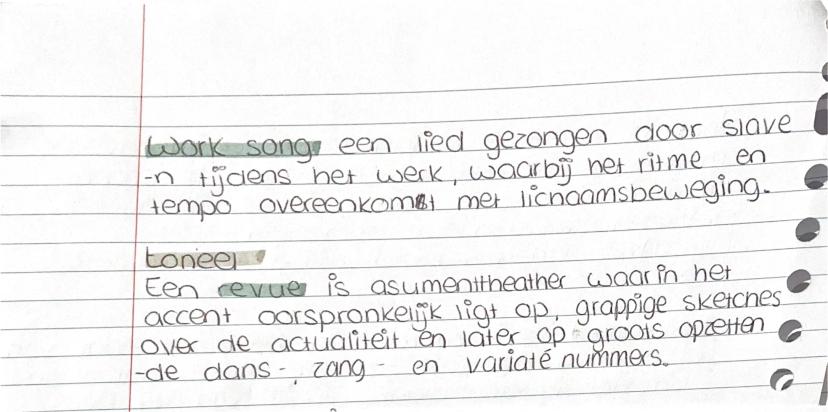 Work song, een lied gezongen door slave
-n tijdens het werk, waarbij het ritme en
tempo overeenkomst met lichaamsbeweging.
toneel
Een revue is asumenttheather waarin het
accent oorspronkelijk ligt op, grappige sketches
over de actualiteit en later op groots opzetten
-de dans-, zang- en variaté nummers.